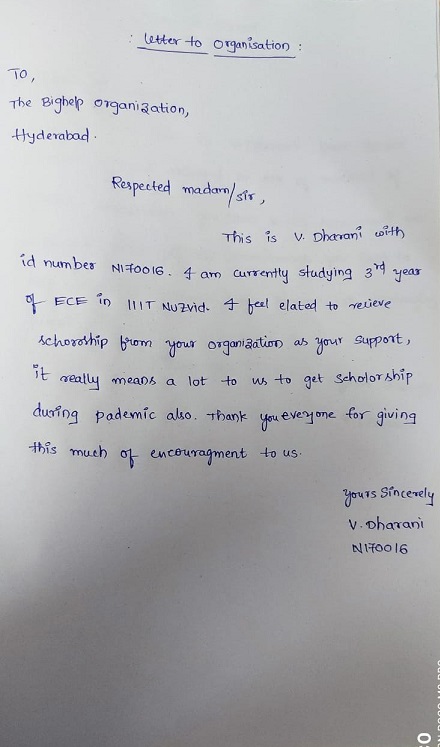 : letter to Organisation :
To,
The Bighelp Organization,
Hyderabad.
Respected madam/sir,
This is V. Dharani with
id number N170016. I am currently studying 3rd year
of ECE in IIIT NUZvid. I feel elated to relieve
schoroship from your organization as your support,
it really means a lot to us to get scholorship
during pademic also. Thank you everyone for giving
this much of encouragment to us.
yours Sincerely
V. Dharani
N170016